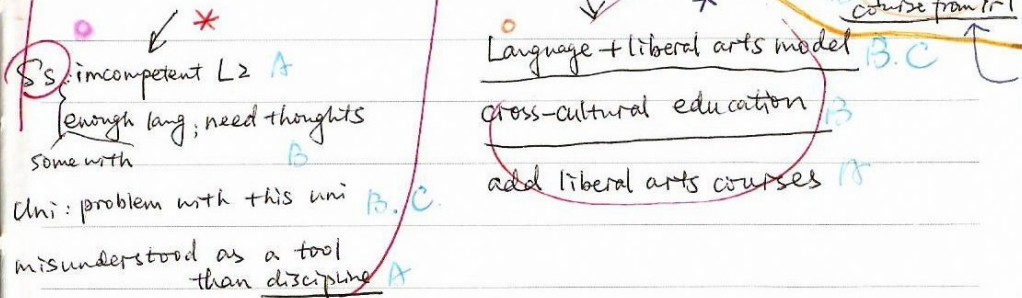 course from
Ss: imcompetent L2 A
enough lang; need thoughts
some with
B
Uni: problem with this uni B. C.
misunderstood as a tool
than discipline A
Language + liberal arts model B. C
cross-cultural education B
add liberal arts courses A